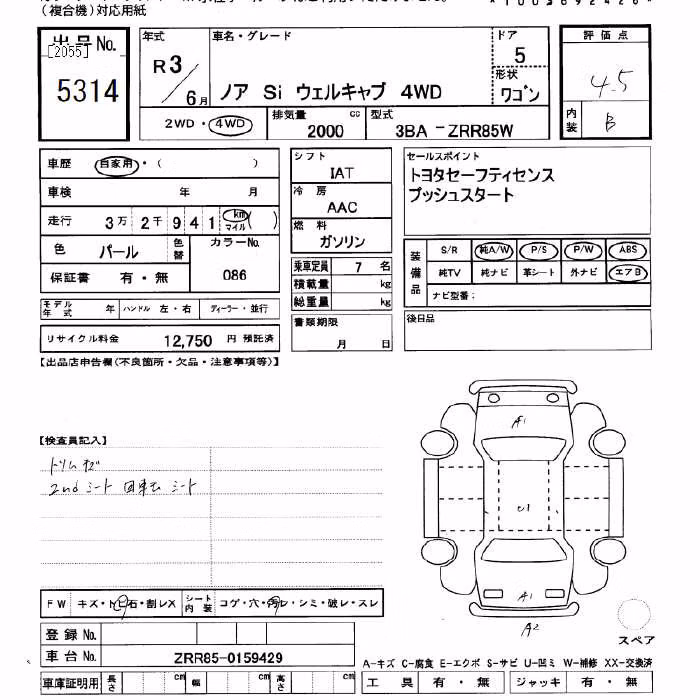 （複合機）対応用紙
*1003692426*
出品No.
[2055]
5314
年式
R3／6月
車名・グレード
ノア Si ウェルキャブ 4WD
ドア
5
形状
ワゴン
評価点
4.5
内装
B
2WD・4WD
排気量
2000 cc
型式
3BA-ZRR85W
車歴 自家用・（ ）
車検 年 月
走行 3万2千941 km マイル（ ）
色 パール 色替
カラーNo.
086
保証書 有・無
モデル年式 年 ハンドル 左・右 ディーラー・並行
リサイクル料金 12,750 円 預託済
シフト
IAT
冷房
AAC
燃料
ガソリン
乗車定員 7 名
積載量 kg
総重量 kg
書類期限
月 日
セールスポイント
トヨタセーフティセンス
プッシュスタート
装備品
S/R 純A/W P/S P/W ABS
純TV 純ナビ 革シート 外ナビ エアB
ナビ型番：
後日品
【出品店申告欄（不良箇所・欠品・注意事項等）】
【検査員記入】
トリムキズ
2ndシート 回転シート
A1
U1
A1
A2
スペア
FW キズ・トビ石・割レX シート内装 コゲ・穴・汚レ・シミ・破レ・スレ
登録No.
車台No. ZRR85-0159429
車庫証明用 長さ cm 幅 cm 高さ cm
A-キズ C-腐食 E-エクボ S-サビ U-凹ミ W-補修 XX-交換済
工具 有・無 ジャッキ 有・無